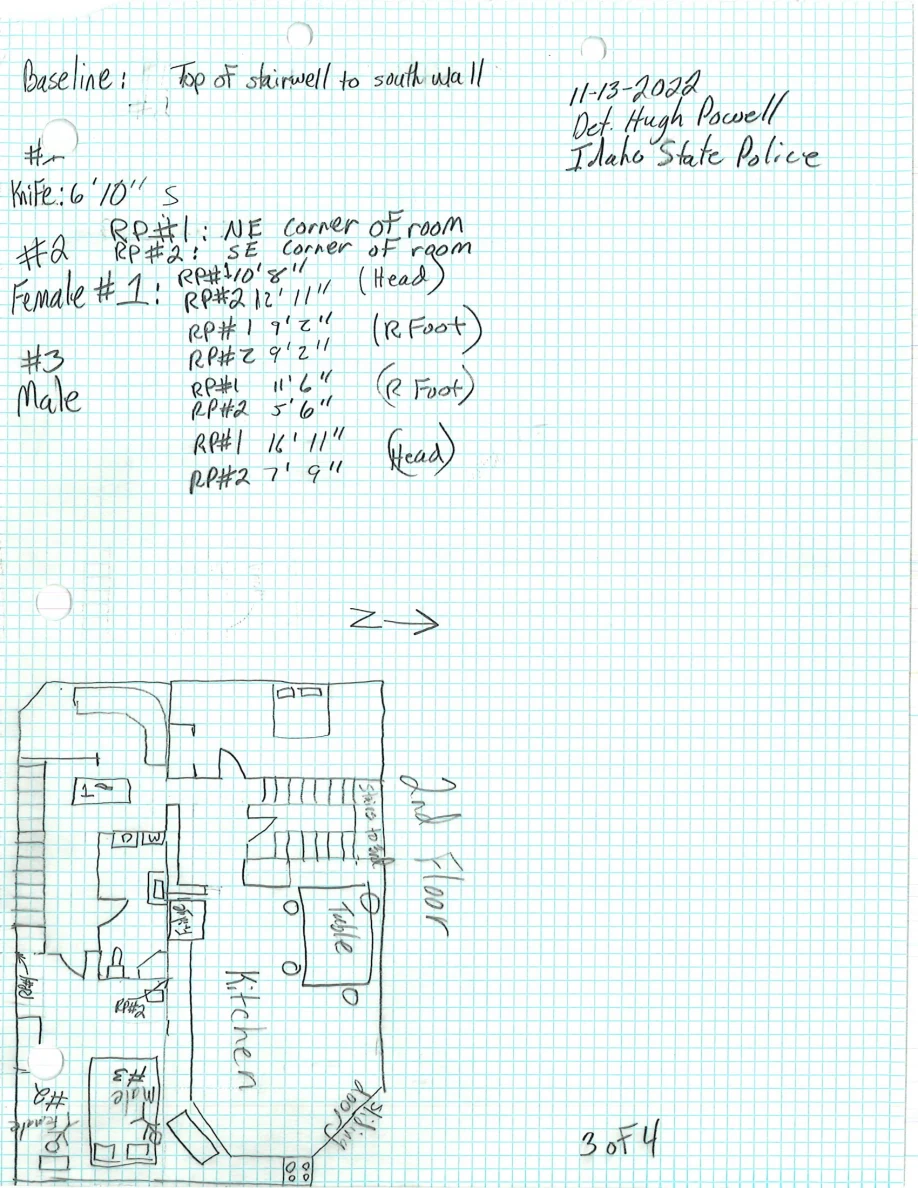 Baseline: Top of stairwell to south wall
#1
11-13-2022
Det. Hugh Powell
Idaho State Police
#1
Knife: 6'10" S
RP#1: NE corner of room
#2 RP#2: SE corner of room
Female #1: RP#1 10'8" (Head)
RP#2 12'11"
RP#1 9'2" (R Foot)
RP#2 9'2"
#3
Male RP#1 11'6" (R Foot)
RP#2 5'6"
RP#1 16'11" (Head)
RP#2 7'9"
N
2nd Floor
stairs to 3rd
1
D W
Table
Fridge
Kitchen
RP#1
RP#2
#3
Male
#2
Female
sliding
door
3 of 4